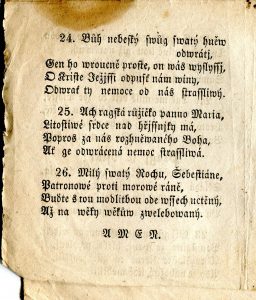 24. Bůh nebeský swůg swatý hněw
odwrátj,
Gen ho wroucně proste, on wás wyslyssj,
O Kriste Ježjssi odpusť nám winy,
Odwrať ty nemoce od nás strassliwý.
25. Ach ragská růžičko panno Maria,
Litostiwé srdce nad hřjssnjky má,
Popros za nás rozhněwaného Boha,
Ať ge odwrácená nemoc strassliwá.
26. Milý swatý Rochu, Šebestiáne,
Patronowé proti morowé ráně,
Buďte s tou modlitbou ode wssech uctěný,
Až na wěky wěkůw zwelebowaný.
AMEN.